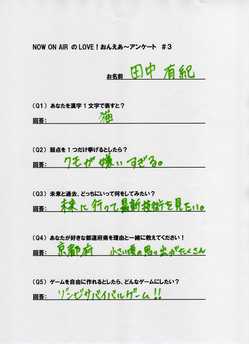 NOW ON AIR のLOVE!おんえあ~アンケート #3
お名前 田中 有紀
(Q1) あなたを漢字1文字で表すと?
回答: 猫
(Q2) 弱点を1つだけ挙げるとしたら?
回答: クモが嫌いすぎる。
(Q3) 未来と過去、どっちにいって何をしてみたい?
回答: 未来に行って最新技術を見たい。
(Q4) あなたが好きな都道府県を理由と一緒に教えてください!
回答: 京都府 小さい頃の思い出がたくさん
(Q5) ゲームを自由に作れるとしたら、どんなゲームにしたい?
回答: ゾンビサバイバルゲーム!!